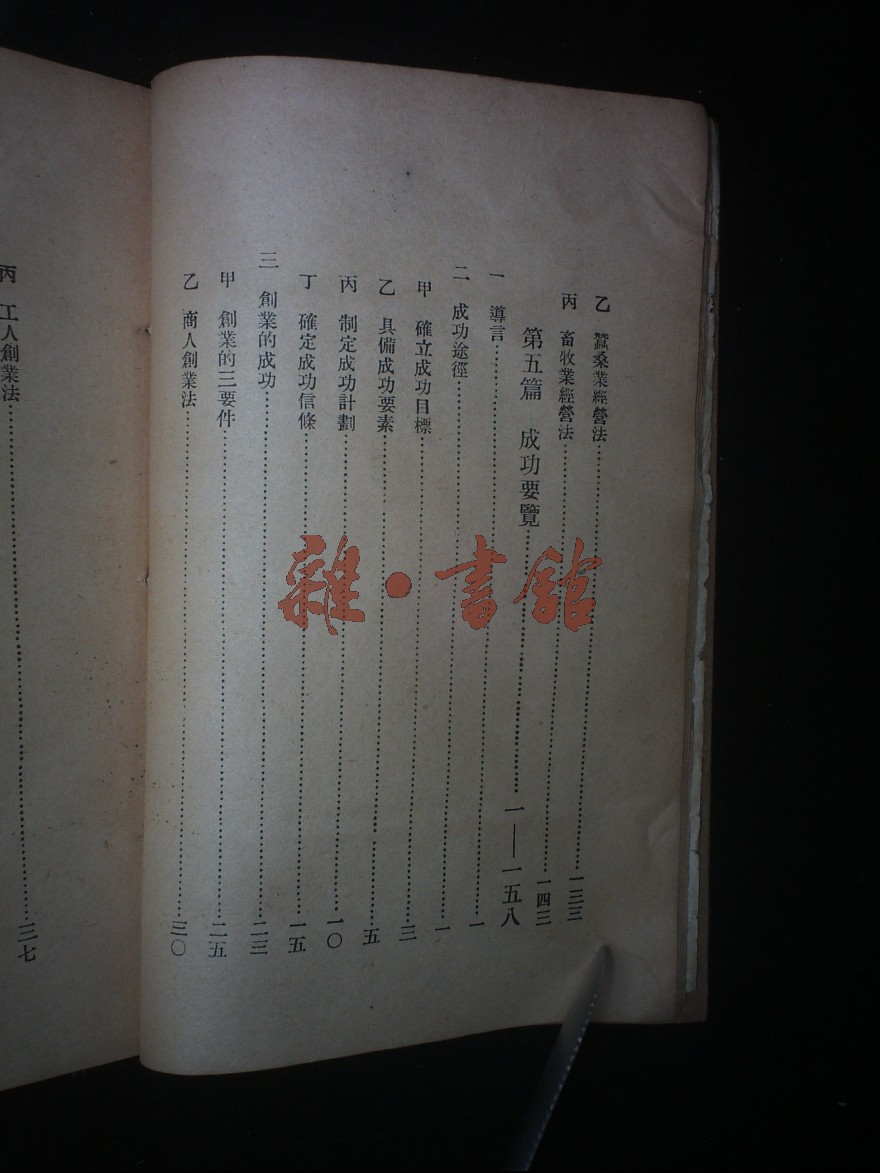 乙 蠶桑業經營法……一三三
丙 畜牧業經營法……一四三
第五篇 成功要覽……一——一五八
一 導言……一
二 成功途徑……一
甲 確立成功目標……三
乙 具備成功要素……五
丙 制定成功計劃……一〇
丁 確定成功信條……一五
三 創業的成功……二三
甲 創業的三要件……二五
乙 商人創業法……三〇
丙 工人創業法……三七
雜·書館